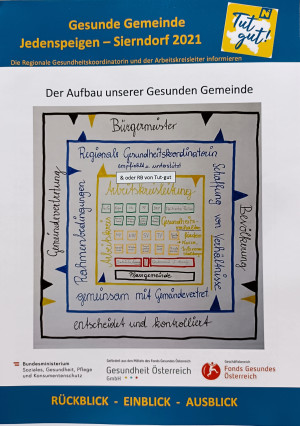 Gesunde Gemeinde
Jedenspeigen – Sierndorf 2021
Tut gut!
Die Regionale Gesundheitskoordinatorin und der Arbeitskreisleiter informieren
Der Aufbau unserer Gesunden Gemeinde
Bürgermeister
Regionale Gesundheitskoordinatorin
empfiehlt + unterstützt
& oder RB von Tut-gut
Arbeitskreisleitung
Gemeindevertretung
Rahmenbedingungen
Schaffung von Verhältnisse
Bevölkerung
Pfarrgemeinde
gemeinsam mit Gemeindevertret
entscheidet und kontrolliert
Bundesministerium
Soziales, Gesundheit, Pflege
und Konsumentenschutz
Gefördert aus den Mitteln des Fonds Gesundes Österreich
Gesundheit Österreich
GmbH
Geschäftsbereich
Fonds Gesundes
Österreich
RÜCKBLICK - EINBLICK - AUSBLICK